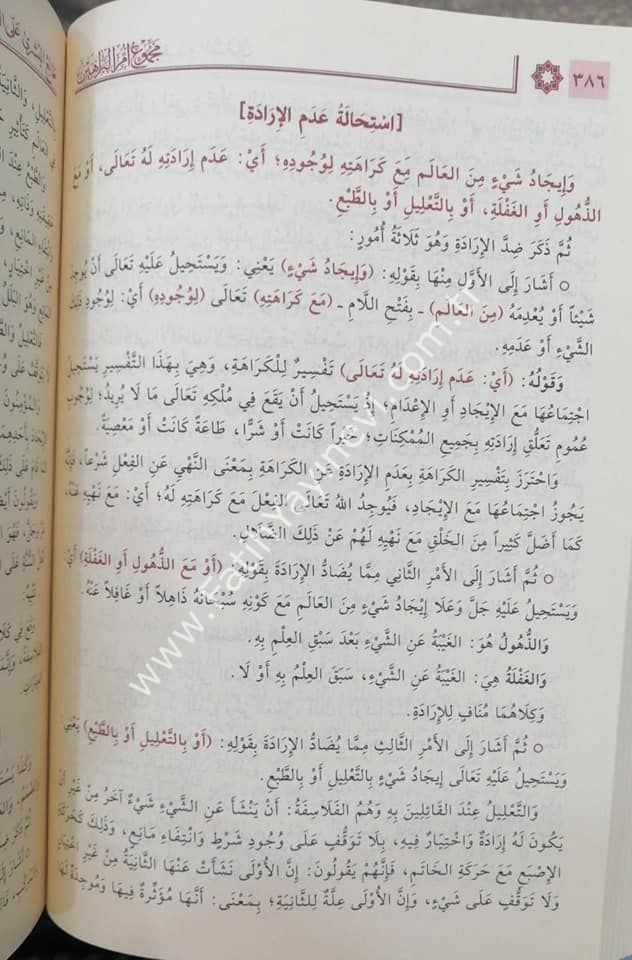 مجموع أم البراهين
٣٨٦
[اسْتِحَالَةُ عَدَمِ الإِرَادَةِ]
وَإِيجَادُ شَيْءٍ مِنَ العَالَمِ مَعَ كَرَاهَتِهِ لِوُجُودِهِ؛ أَيْ: عَدَمِ إِرَادَتِهِ لَهُ تَعَالَى، أَوْ مَعَ
الذُّهُولِ أَوِ الغَفْلَةِ، أَوْ بِالتَّعْلِيلِ أَوْ بِالطَّبْعِ.
ثُمَّ ذَكَرَ ضِدَّ الإِرَادَةِ وَهُوَ ثَلَاثَةُ أُمُورٍ:
○ أَشَارَ إِلَى الأَوَّلِ مِنْهَا بِقَوْلِهِ: (وَإِيجَادُ شَيْءٍ) يَعْنِي: وَيَسْتَحِيلُ عَلَيْهِ تَعَالَى أَنْ يُوجِدَ
شَيْئاً أَوْ يُعْدِمَهُ (مِنَ العَالَمِ) ـ بِفَتْحِ اللَّامِ ـ (مَعَ كَرَاهَتِهِ) تَعَالَى (لِوُجُودِهِ) أَيْ: لِوُجُودِ ذَلِكَ
الشَّيْءِ أَوْ عَدَمِهِ.
وَقَوْلُهُ: (أَيْ: عَدَمِ إِرَادَتِهِ لَهُ تَعَالَى) تَفْسِيرٌ لِلْكَرَاهَةِ، وَهِيَ بِهَذَا التَّفْسِيرِ يَسْتَحِيلُ
اجْتِمَاعُهَا مَعَ الإِيجَادِ أَوِ الإِعْدَامِ، إِذْ يَسْتَحِيلُ أَنْ يَقَعَ فِي مُلْكِهِ تَعَالَى مَا لَا يُرِيدُ؛ لِوُجُوبِ
عُمُومِ تَعَلُّقِ إِرَادَتِهِ بِجَمِيعِ المُمْكِنَاتِ؛ خَيْراً كَانَتْ أَوْ شَرًّا، طَاعَةً كَانَتْ أَوْ مَعْصِيَةً.
وَاحْتَرَزَ بِتَفْسِيرِ الكَرَاهَةِ بِعَدَمِ الإِرَادَةِ عَنِ الكَرَاهَةِ بِمَعْنَى النَّهْيِ عَنِ الفِعْلِ شَرْعاً، فَإِنَّهُ
يَجُوزُ اجْتِمَاعُهَا مَعَ الإِيجَادِ، فَيُوجِدُ اللهُ تَعَالَى الفِعْلَ مَعَ كَرَاهَتِهِ لَهُ؛ أَيْ: مَعَ نَهْيِهِ عَنْهُ،
كَمَا أَضَلَّ كَثِيراً مِنَ الخَلْقِ مَعَ نَهْيِهِ لَهُمْ عَنْ ذَلِكَ الضَّلَالِ.
○ ثُمَّ أَشَارَ إِلَى الأَمْرِ الثَّانِي مِمَّا يُضَادُّ الإِرَادَةَ بِقَوْلِهِ: (أَوْ مَعَ الذُّهُولِ أَوِ الغَفْلَةِ) أَيْ:
وَيَسْتَحِيلُ عَلَيْهِ جَلَّ وَعَلَا إِيجَادُ شَيْءٍ مِنَ العَالَمِ مَعَ كَوْنِهِ سُبْحَانَهُ ذَاهِلاً أَوْ غَافِلاً عَنْهُ.
وَالذُّهُولُ هُوَ: الغَيْبَةُ عَنِ الشَّيْءِ بَعْدَ سَبْقِ العِلْمِ بِهِ.
وَالغَفْلَةُ هِيَ: الغَيْبَةُ عَنِ الشَّيْءِ، سَبَقَ العِلْمُ بِهِ أَوْ لَا.
وَكِلَاهُمَا مُنَافٍ لِلإِرَادَةِ.
○ ثُمَّ أَشَارَ إِلَى الأَمْرِ الثَّالِثِ مِمَّا يُضَادُّ الإِرَادَةَ بِقَوْلِهِ: (أَوْ بِالتَّعْلِيلِ أَوْ بِالطَّبْعِ) يَعْنِي:
وَيَسْتَحِيلُ عَلَيْهِ تَعَالَى إِيجَادُ شَيْءٍ بِالتَّعْلِيلِ أَوْ بِالطَّبْعِ.
وَالتَّعْلِيلُ عِنْدَ القَائِلِينَ بِهِ وَهُمُ الفَلَاسِفَةُ: أَنْ يَنْشَأَ عَنِ الشَّيْءِ شَيْءٌ آخَرُ مِنْ غَيْرِ أَنْ
يَكُونَ لَهُ إِرَادَةٌ وَاخْتِيَارٌ فِيهِ، بِلَا تَوَقُّفٍ عَلَى وُجُودِ شَرْطٍ وَانْتِفَاءِ مَانِعٍ، وَذَلِكَ كَحَرَكَةِ
الإِصْبَعِ مَعَ حَرَكَةِ الخَاتَمِ، فَإِنَّهُمْ يَقُولُونَ: إِنَّ الأُولَى نَشَأَتْ عَنْهَا الثَّانِيَةُ مِنْ غَيْرِ اخْتِيَارٍ
وَلَا تَوَقُّفٍ عَلَى شَيْءٍ، وَإِنَّ الأُولَى عِلَّةٌ لِلثَّانِيَةِ؛ بِمَعْنَى: أَنَّهَا مُؤَثِّرَةٌ فِيهَا وَمُوجِدَةٌ لَهَا
www.FatihYayinevi.com.tr